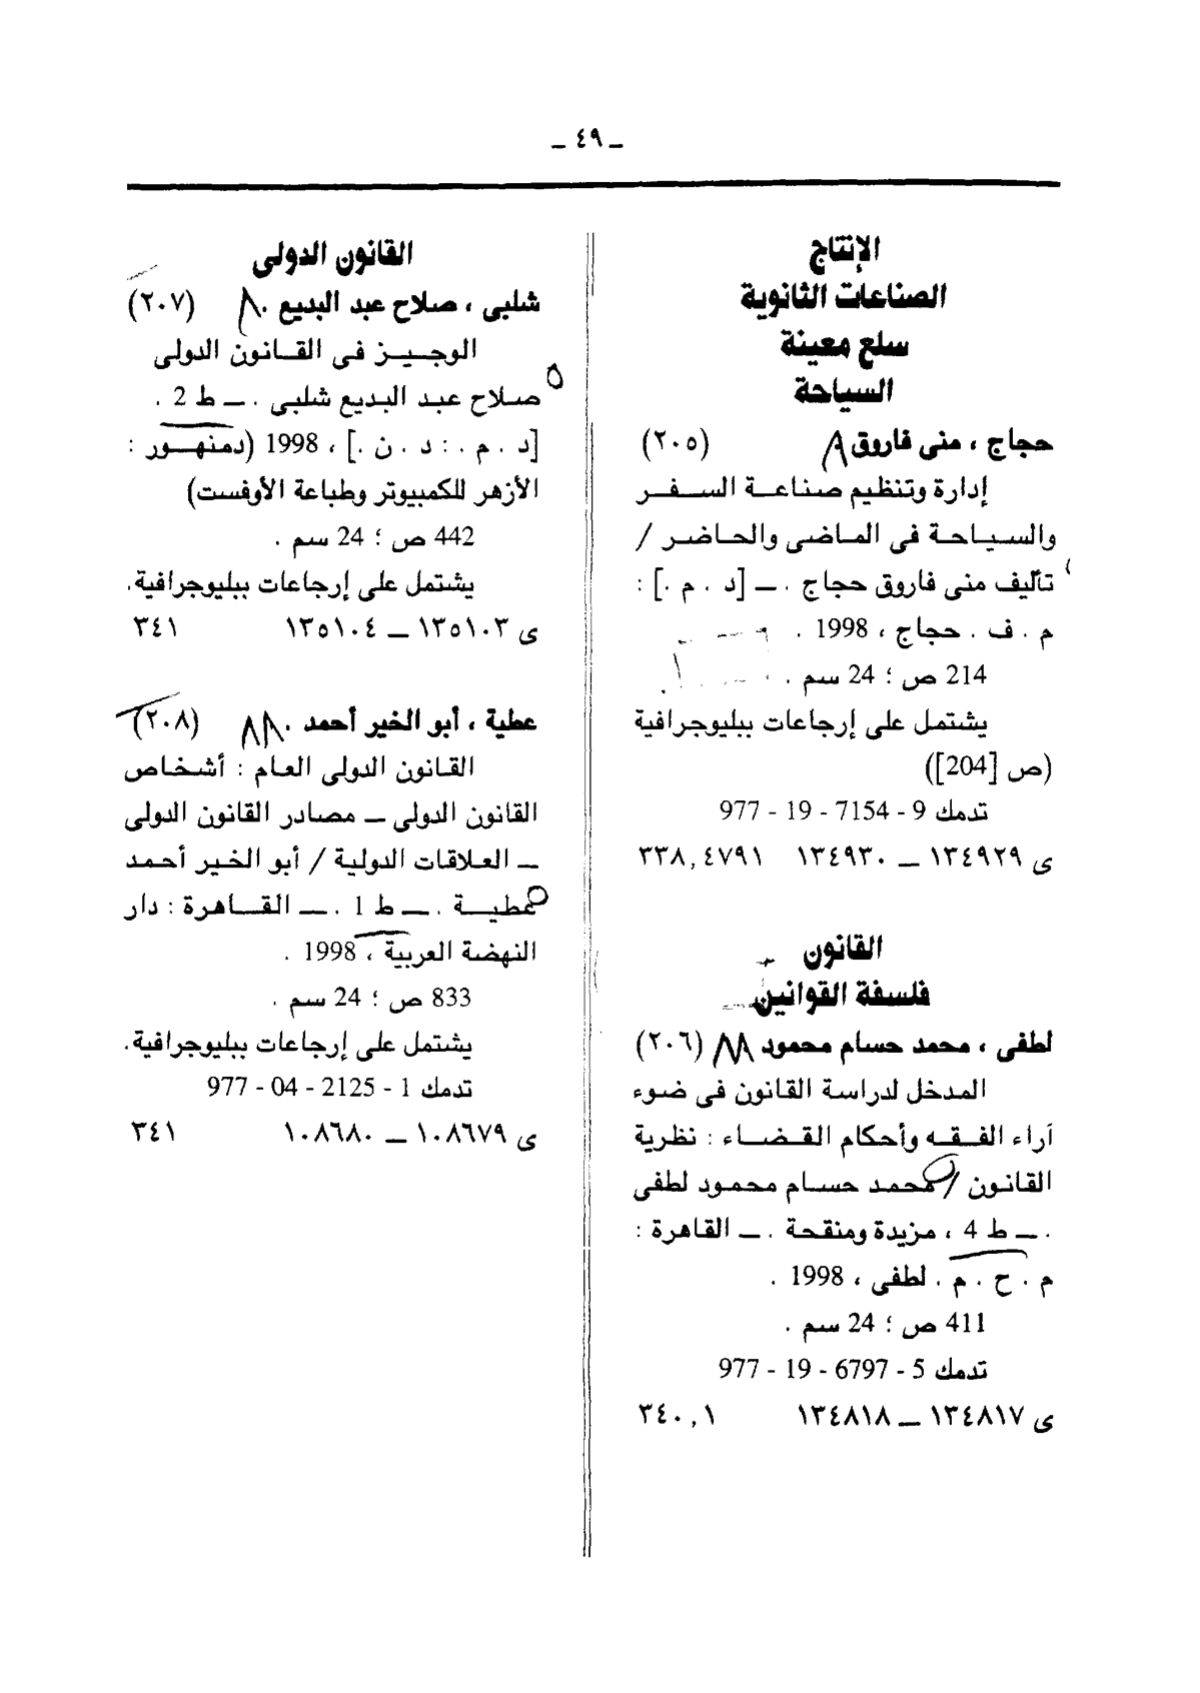 ـ ٤٩ ـ
الإنتاج
الصناعات الثانوية
سلع معينة
السياحة
حجاج ، منى فاروق (٢٠٥)
إدارة وتنظيم صناعة السفر
والسياحة فى الماضى والحاضر /
تأليف منى فاروق حجاج . ـ [د . م .] :
م . ف . حجاج ، 1998 .
214 ص ؛ 24 سم .
يشتمل على إرجاعات ببليوجرافية
(ص [204])
تدمك 9 - 7154 - 19 - 977
ى ١٣٤٩٢٩ ــ ١٣٤٩٣٠ ٣٣٨,٤٧٩١
القانون
فلسفة القوانين
لطفى ، محمد حسام محمود (٢٠٦)
المدخل لدراسة القانون فى ضوء
آراء الفقه وأحكام القضاء : نظرية
القانون / محمد حسام محمود لطفى
. ــ ط 4 ، مزيدة ومنقحة . ــ القاهرة :
م . ح . م . لطفى ، 1998 .
411 ص ؛ 24 سم .
تدمك 5 - 6797 - 19 - 977
ى ١٣٤٨١٧ ــ ١٣٤٨١٨ ٣٤٠,١
القانون الدولى
شلبى ، صلاح عبد البديع . (٢٠٧)
الوجيز فى القانون الدولى
صلاح عبد البديع شلبى . ــ ط 2 .
[د . م . : د . ن .] ، 1998 (دمنهور :
الأزهر للكمبيوتر وطباعة الأوفست)
442 ص ؛ 24 سم .
يشتمل على إرجاعات ببليوجرافية.
ى ١٣٥١٠٣ ــ ١٣٥١٠٤ ٣٤١
عطية ، أبو الخير أحمد . (٢٠٨)
القانون الدولى العام : أشخاص
القانون الدولى ــ مصادر القانون الدولى
ــ العلاقات الدولية / أبو الخير أحمد
عطية . ــ ط 1 . ــ القاهرة : دار
النهضة العربية ، 1998 .
833 ص ؛ 24 سم .
يشتمل على إرجاعات ببليوجرافية.
تدمك 1 - 2125 - 04 - 977
ى ١٠٨٦٧٩ ــ ١٠٨٦٨٠ ٣٤١